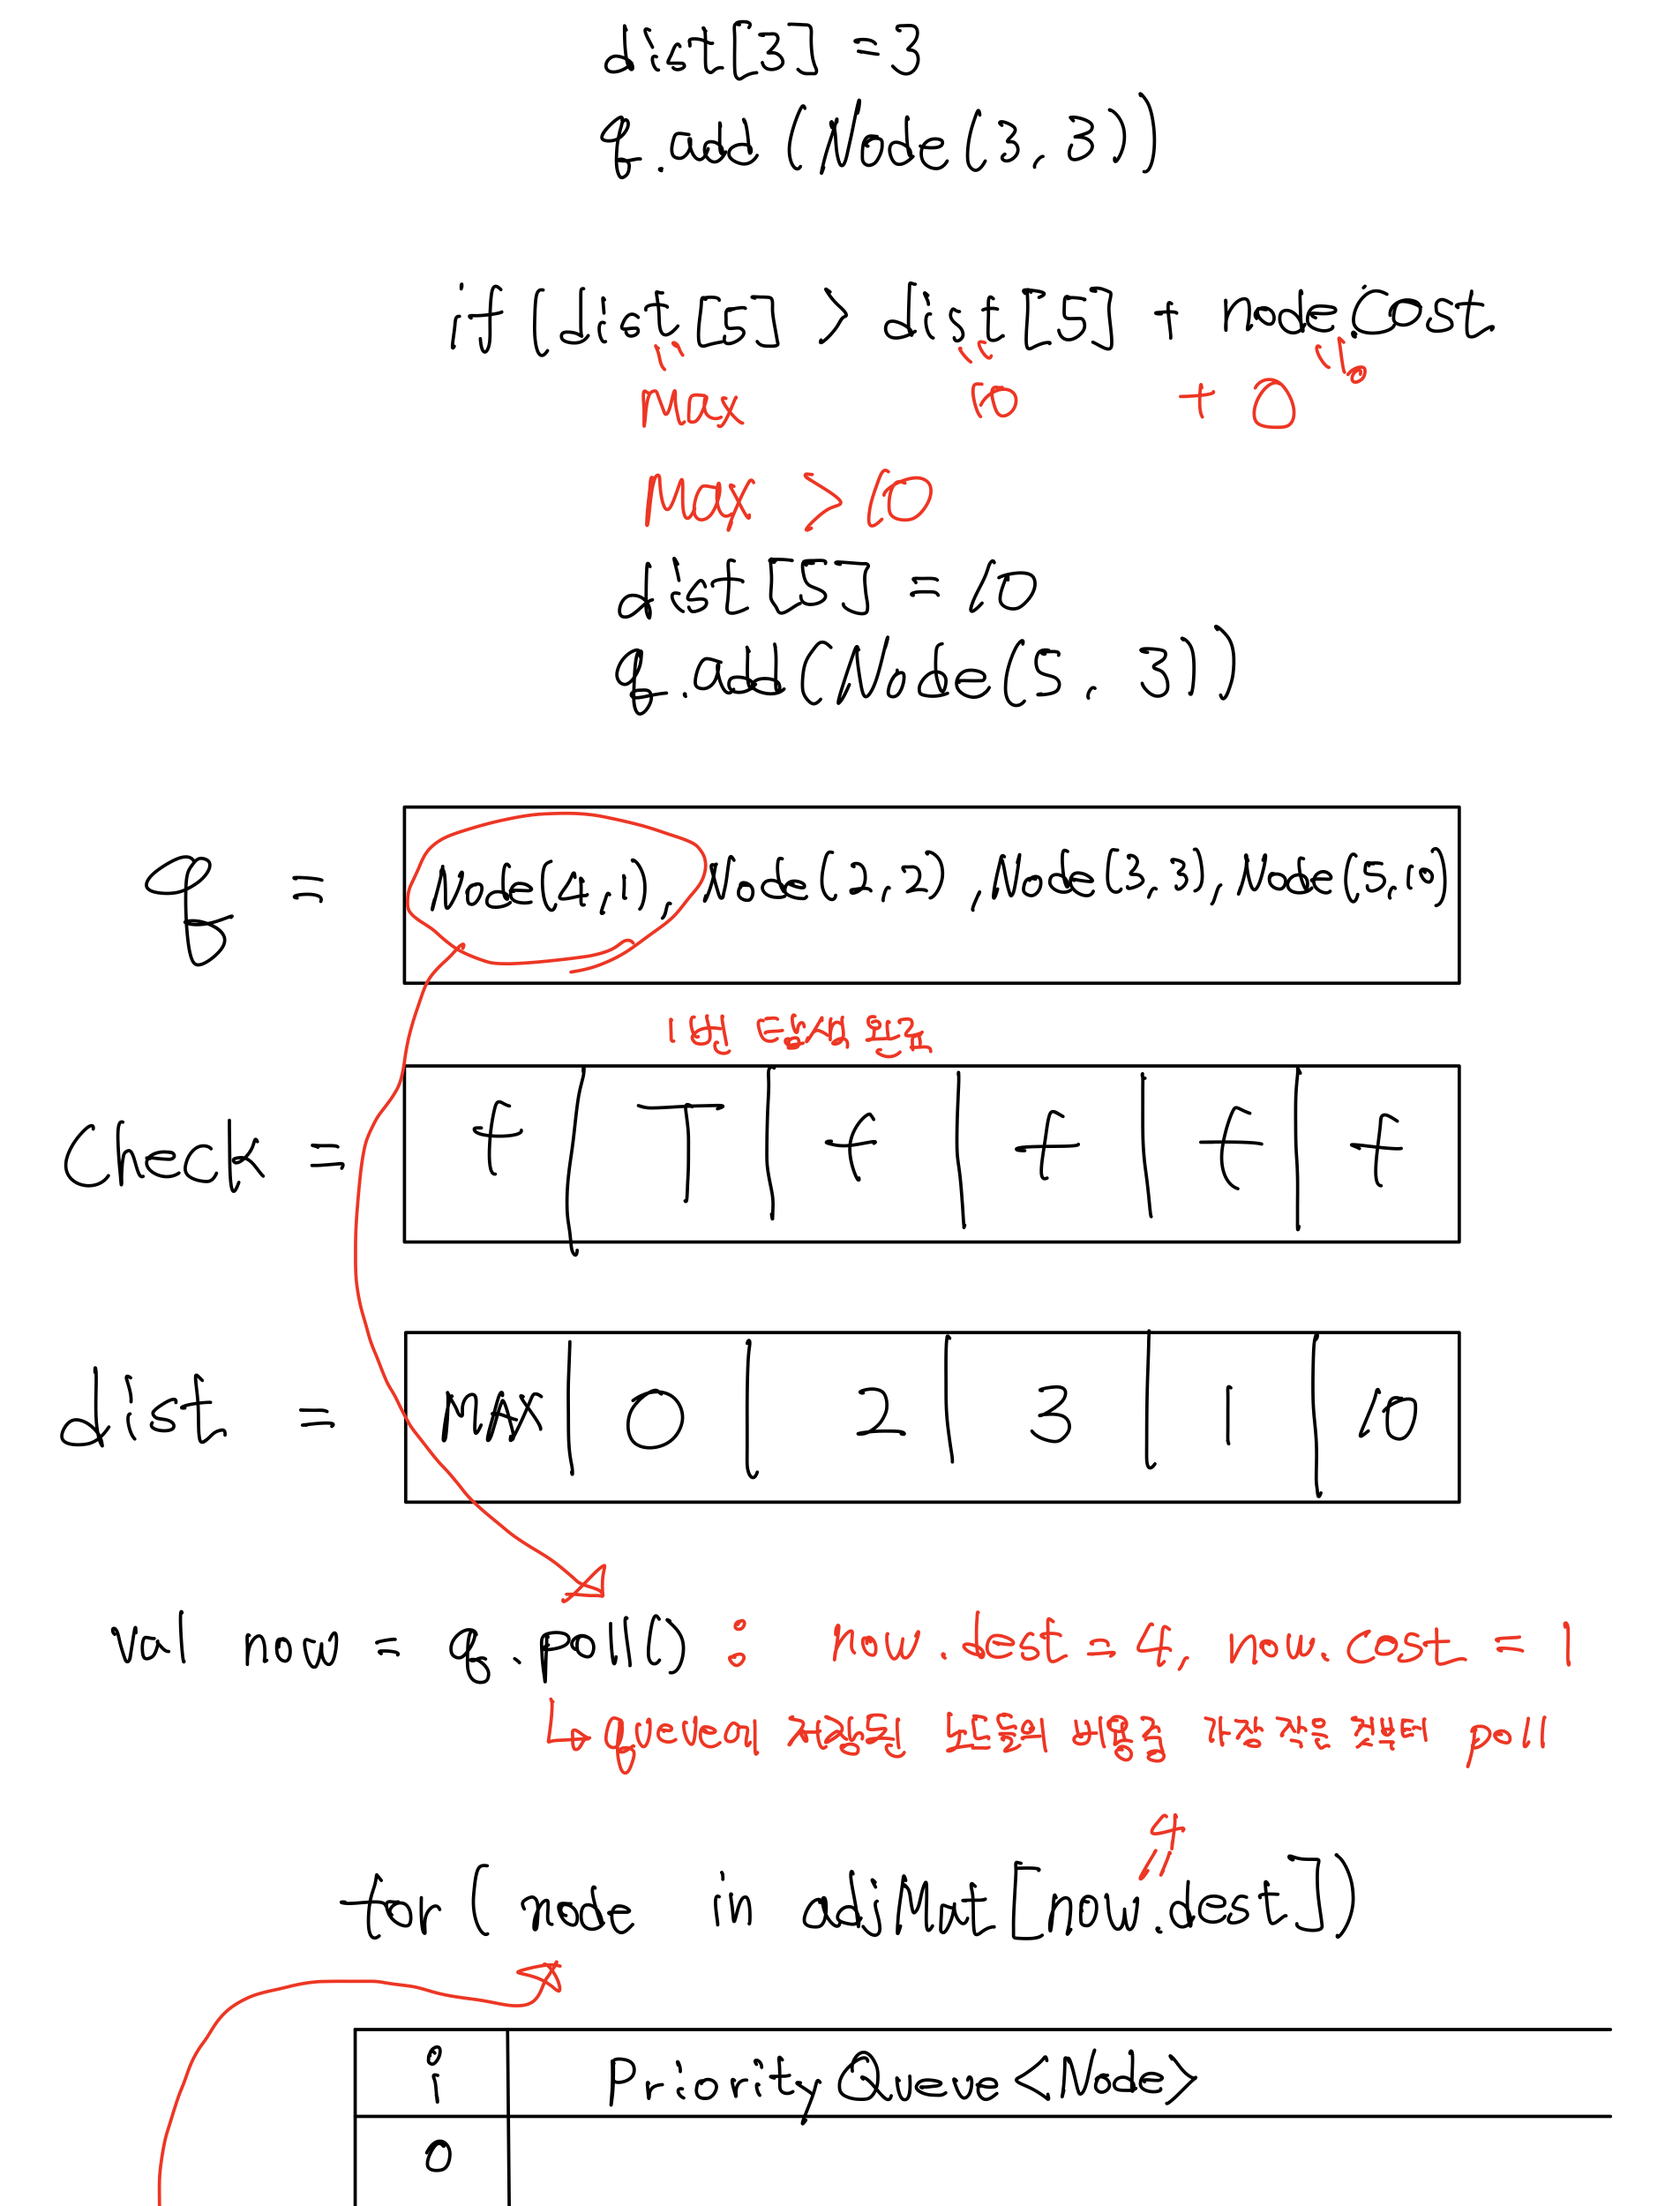 dist[3] = 3
q.add(Node(3,3))
if(dist[5] > dist[5] + node.cost
" " "
Max 10 + 0
Max > 10
dist[5] = 10
q.add(Node(5, 3))
q = Node(4,1), Node(2,2), Node(3,3), Node(5,10)
1번 탐색 완료
Check = f T f f f f
dist = MAX 0 2 3 1 10
val now = q.poll() : now.dest = 4, now.cost = 1
↳ queue에 저장된 노드들의 비용중 가장 작은 것부터 poll
4
"
for( node in adjMat[now.dest])
i PriorityQueue<Node>
0